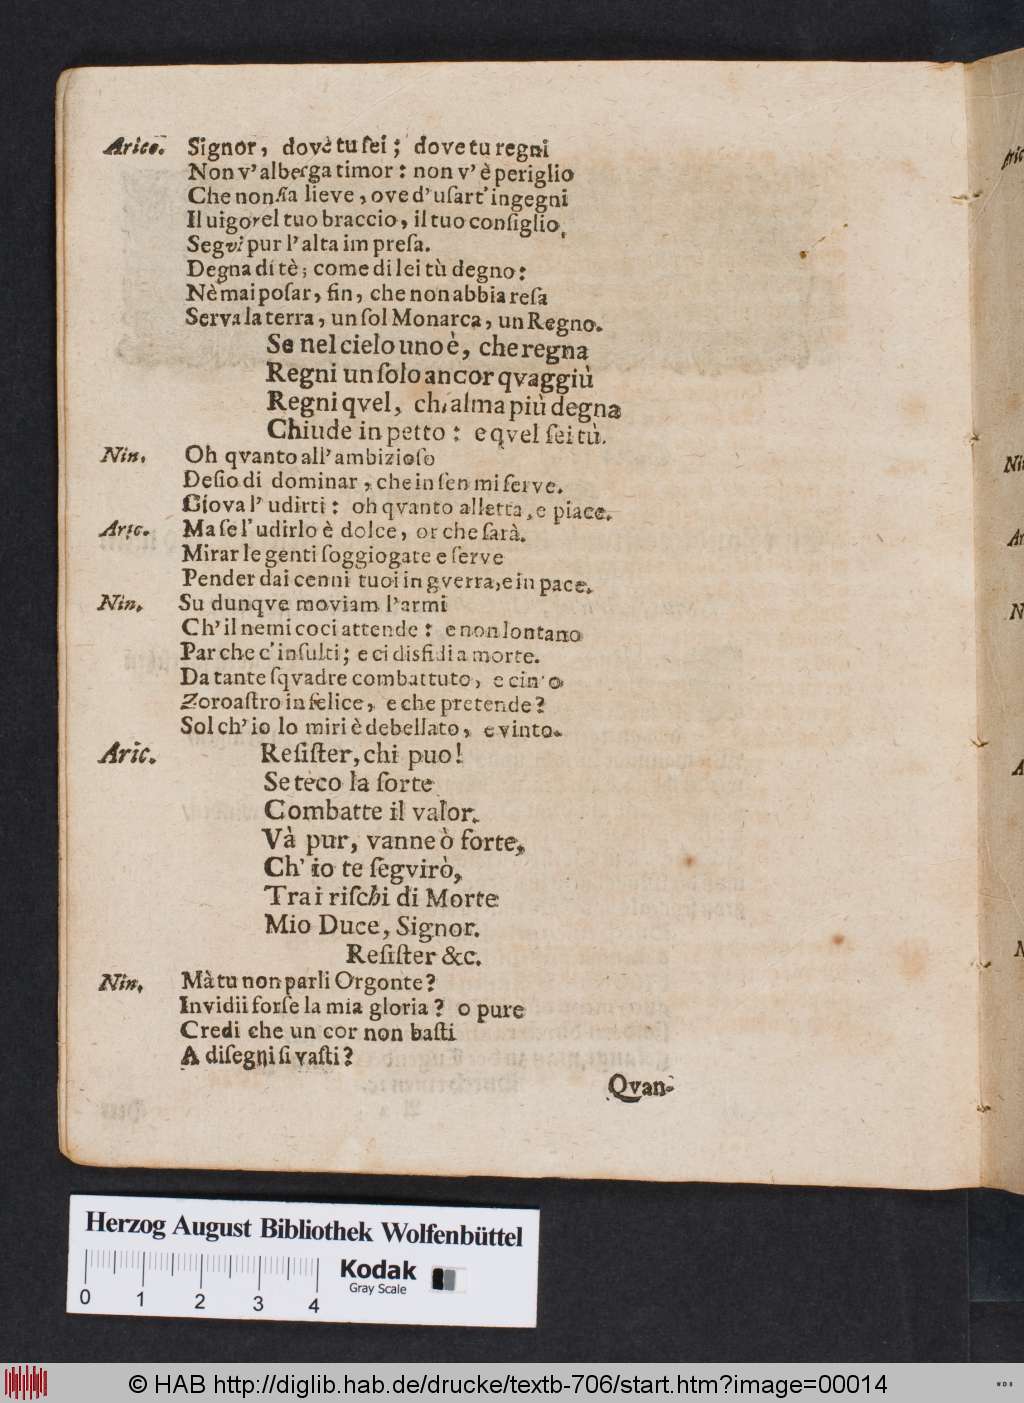 Arico. Signor, dovè tu ſei; dove tu regni
Non v'alberga timor: non v'è periglio
Che non ſia lieve, ove d'uſart'ingegni
Il uigorel tuo braccio, il tuo conſiglio,
Segvi pur l'alta impreſa.
Degna di tè; come di lei tù degno:
Nè mai poſar, fin, che non abbia reſa
Serva la terra, un ſol Monarca, un Regno.
Se nel cielo uno è, che regna
Regni un ſolo ancor qvaggiù
Regni qvel, ch'alma più degna
Chiude in petto: e qvel ſei tù.
Nin. Oh qvanto all'ambizioſo
Deſio di dominar, che in ſen mi ſerve.
Giova l'udirti: oh qvanto alletta, e piace.
Aric. Ma ſe l'udirlo è dolce, or che ſarà.
Mirar le genti ſoggiogate e ſerve
Pender dai cenni tuoi in gverra, e in pace.
Nin. Su dunqve moviam l'armi
Ch'il nemico ci attende: e non lontano
Par che c'inſulti; e ci disfidi a morte.
Da tante ſqvadre combattuto, e cin'o
Zoroaſtro infelice, e che pretende?
Sol ch'io lo miri è debellato, e vinto.
Aric. Reſiſter, chi puo!
Se teco la ſorte
Combatte il valor.
Và pur, vanne ò forte,
Ch'io te ſegvirò,
Tra i riſchi di Morte
Mio Duce, Signor.
Reſiſter &c.
Nin. Mà tu non parli Orgonte?
Invidii forſe la mia gloria? o pure
Credi che un cor non baſti
A diſegni ſi vaſti?
Qvan-
Aric
Nin
Ar
N
A
N
Herzog August Bibliothek Wolfenbüttel
Kodak
Gray Scale
0 1 2 3 4
© HAB http://diglib.hab.de/drucke/textb-706/start.htm?image=00014